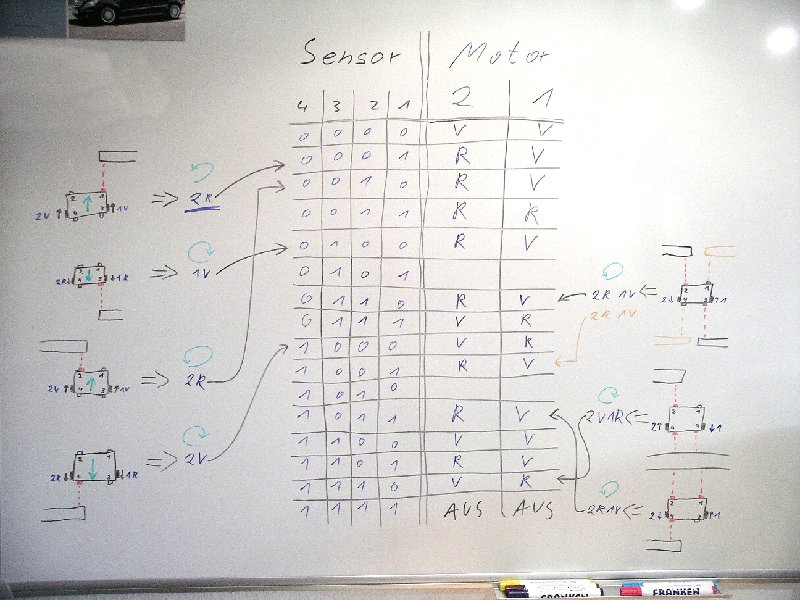 Sensor Motor
4 3 2 1 2 1
0 0 0 0 V V
0 0 0 1 R V
0 0 1 0 R V
0 0 1 1 R R
0 1 0 0 R V
0 1 0 1
0 1 1 0 R V
0 1 1 1 V R
1 0 0 0 V R
1 0 0 1 R V
1 0 1 0
1 0 1 1 R V
1 1 0 0 V V
1 1 0 1 R V
1 1 1 0 V R
1 1 1 1 AUS AUS
2V ↑ ↑ 1V ⇒ 2R
2R ↓ ↓ 1R ⇒ 1V
2V ↑ ↑ 1V ⇒ 2R
2R ↓ ↓ 1R ⇒ 2V
2R 1V ⇐ 2 ↓ ↑ 1
2R 1V
2V 1R ⇐ 2 ↑ ↓ 1
2R 1V ⇐ 2 ↓ ↑ 1
FRANKEN FRANKEN